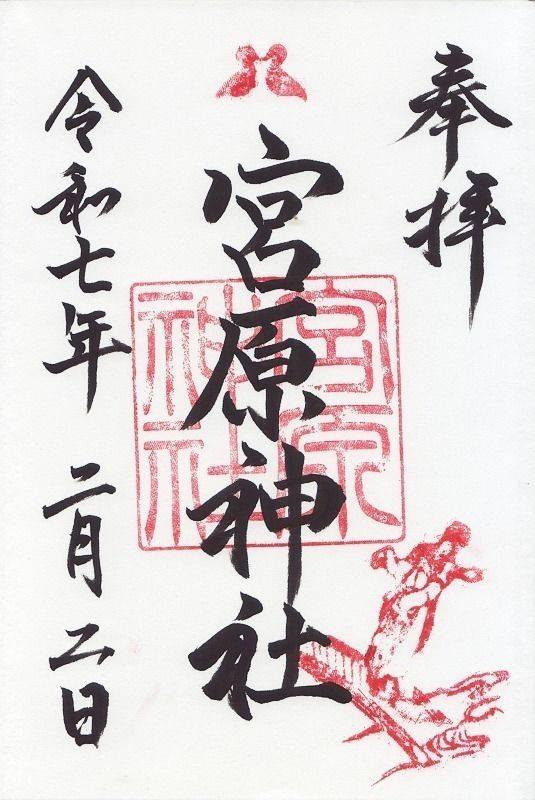 奉拝
宮原神社
宮原
神社
令和七年 二月 二日